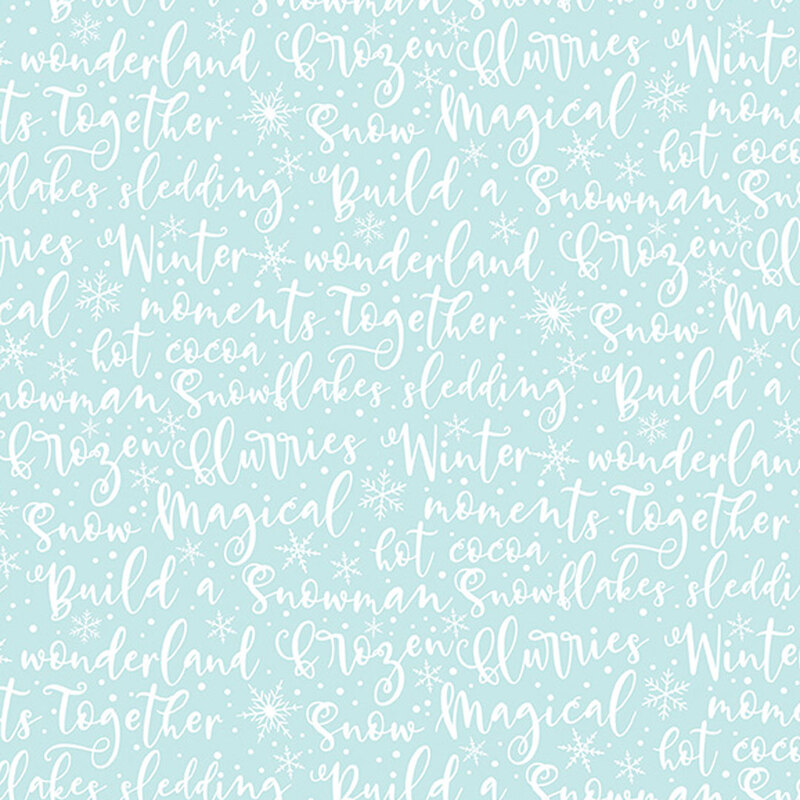 Build a Snowman Snowflakes sledding
wonderland Frozen flurries Winter
ts Together Snow Magical mome
hot coco
flakes sledding Build a Snowman Sno
rries Winter wonderland Frozen flu
cal moments Together Snow Ma
hot cocoa
nowman Snowflakes sledding Build a
Frozen flurries Winter wonderland
Snow Magical moments Together
hot cocoa
Build a Snowman Snowflakes sleddi
wonderland Frozen flurries Winter
ts Together Snow Magical mome
hot coco
flakes sledding Build a Snowman Sno